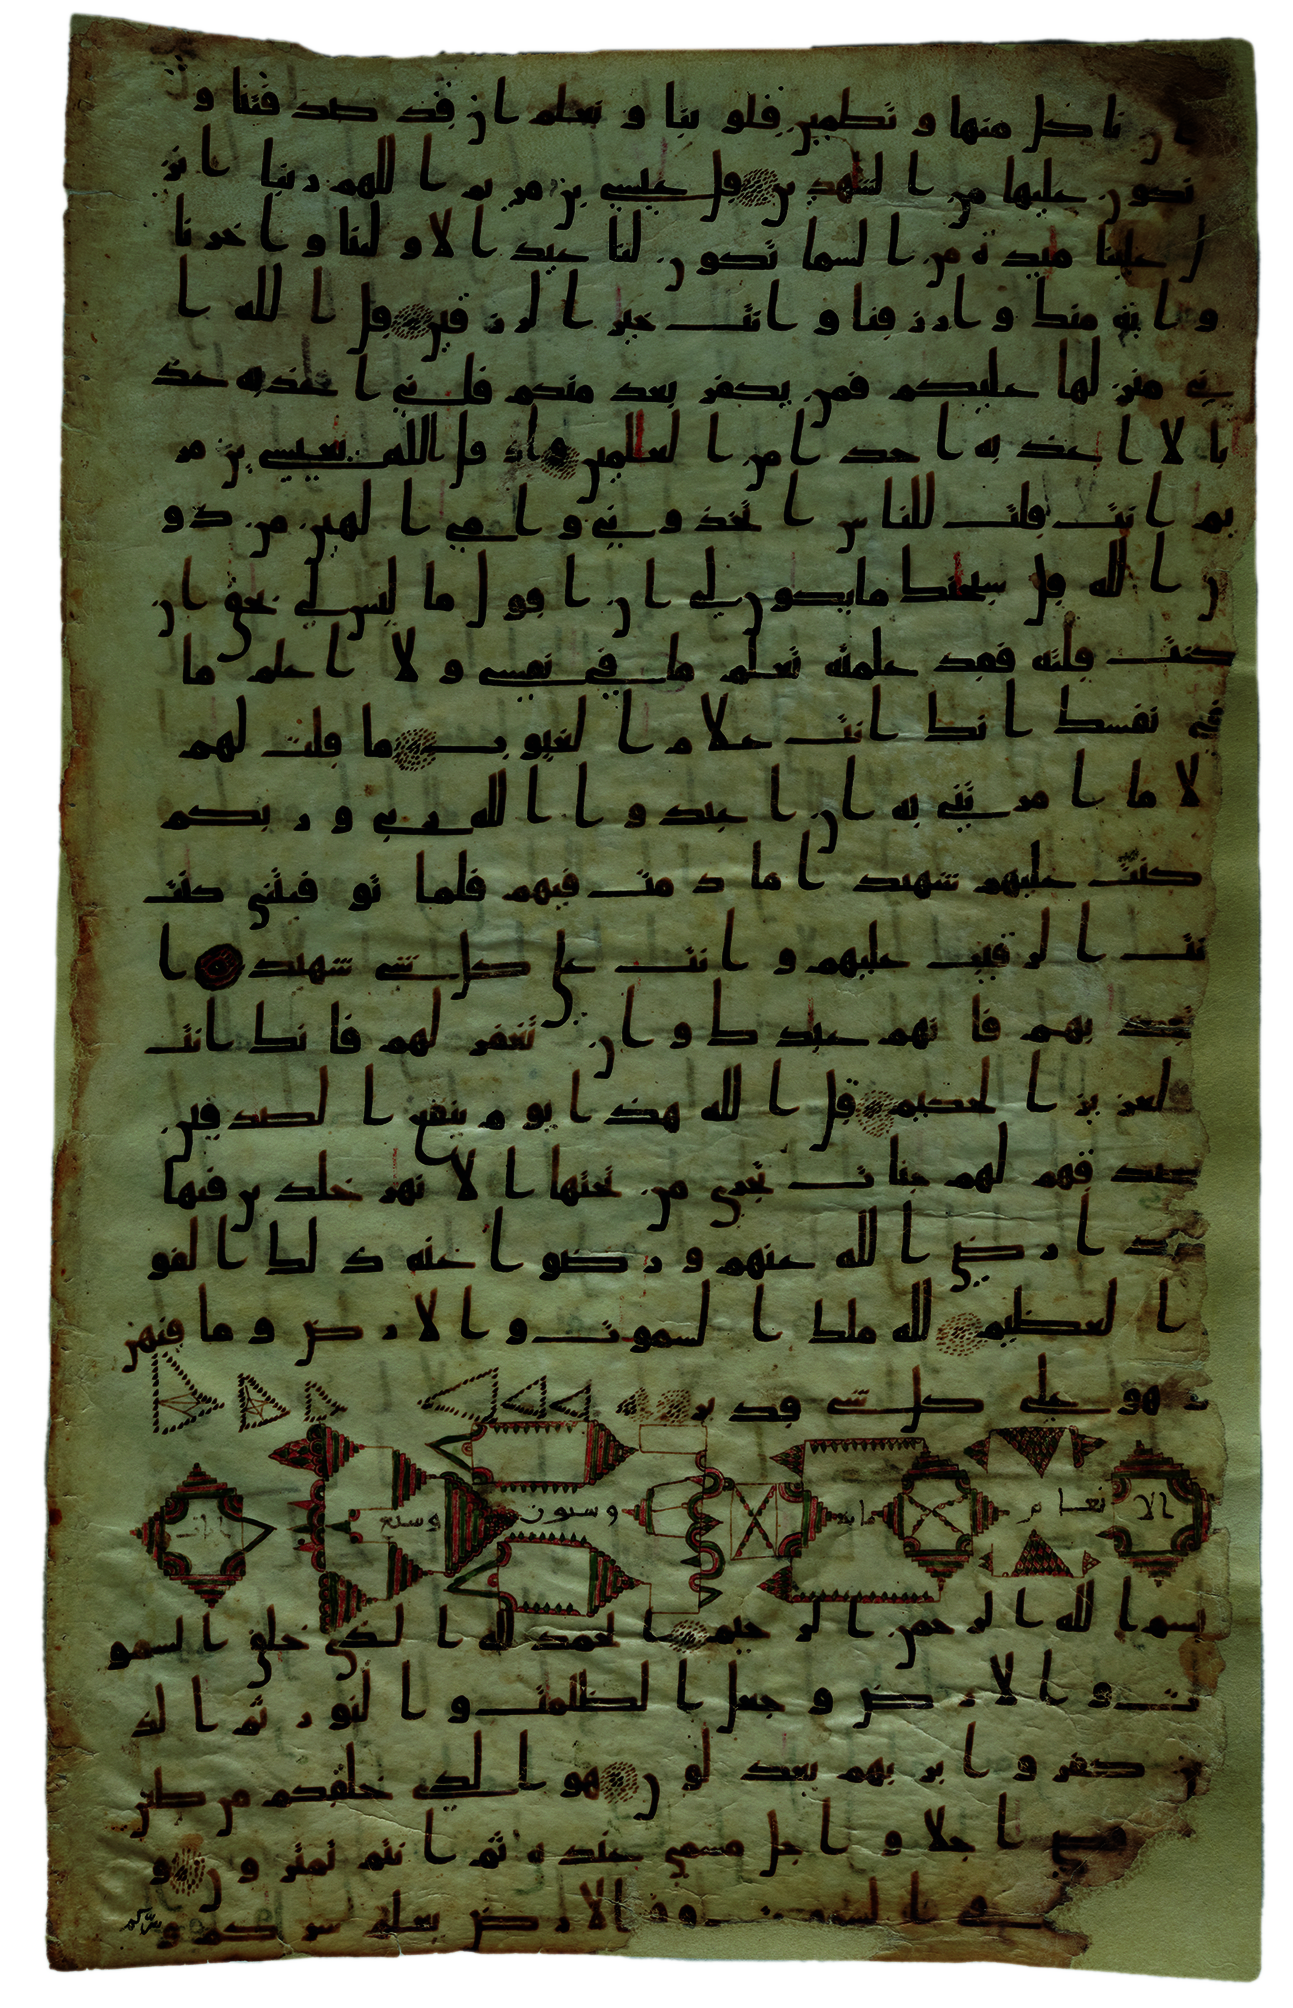 ن ناكل منها و تطمين قلوبنا و نعلم ان قد صدقتنا و
نكون عليها من الشهدين قل عيسى بن مريم اللهم ربنا انز
ل علينا ميدة من السما تكون لنا عيد الاولنا واخرنا
واية منك وارزقنا وانت خير الرزقين قل الله ا
ني منزلها عليكم فمن يكفر بعد منكم فاني اعذبه عذ
با لا اعذبه احد ا من العلمين واذ قل الله يعيسى بن مر
يم انت قلت للناس اتخذوني وامي الهين من دو
ن الله قل سبحنك ما يكون لي ان اقول ما ليس لي بحق ان
كنت قلته فقد علمته تعلم ما في نفسي ولا اعلم ما
في نفسك انك انت علام الغيوب ما قلت لهم
لا ما امرتني به ان اعبدوا الله ربي وربكم
كنت عليهم شهيد ا ما دمت فيهم فلما توفيتني كنت
نت الرقيب عليهم وانت على كل شي شهيد ا
تعذ بهم فانهم عبدك وان تغفر لهم فانك انت
لعزيز الحكيم قل الله هذا يوم ينفع الصدقين
صدقهم لهم جنات تجري من تحتها الانهر خلدين فيها
ا رضي الله عنهم ورضوا عنه ذلك الفو
العظيم لله ملك السموت والارض وما فيهن
هو على كل شي قدير
الانعام مايه وستون وسبع ايات
بسم الله الرحمن الرحيم الحمد لله الذي خلق السمو
ت والارض وجعل الظلمت والنور ثم الذ
ين كفروا بربهم يعدلون هو الذي خلقكم من طين
قضى اجلا واجل مسمى عنده ثم انتم تمترون و
في السموت وفي الارض يعلم سركم و